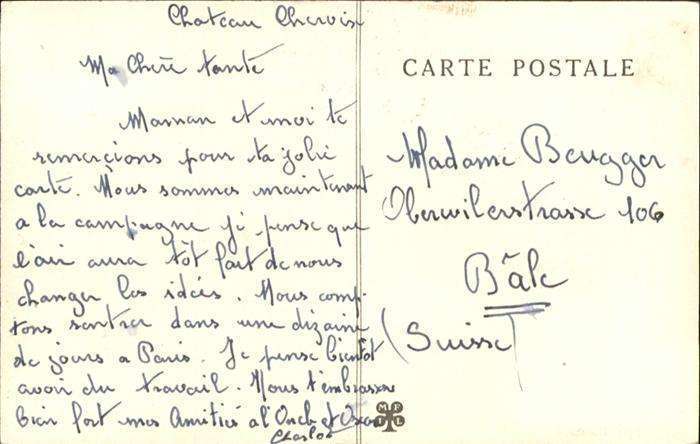 Chateau Chervix
Ma Chère tante
Maman et moi te
remercions pour ta jolie
carte. Nous sommes maintenant
a la campagne je pense que
l'air aura tôt fait de nous
changer les idées. Nous comp-
tons rentrer dans une dizaine
de jours a Paris. Je pense bientôt
avoir du travail. Nous t'embrassons
bien fort mes Amitiés a l'Oncle et
Charlot
CARTE POSTALE
Madame Beugger
Oberwilerstrasse 106
Bâle
(Suisse)